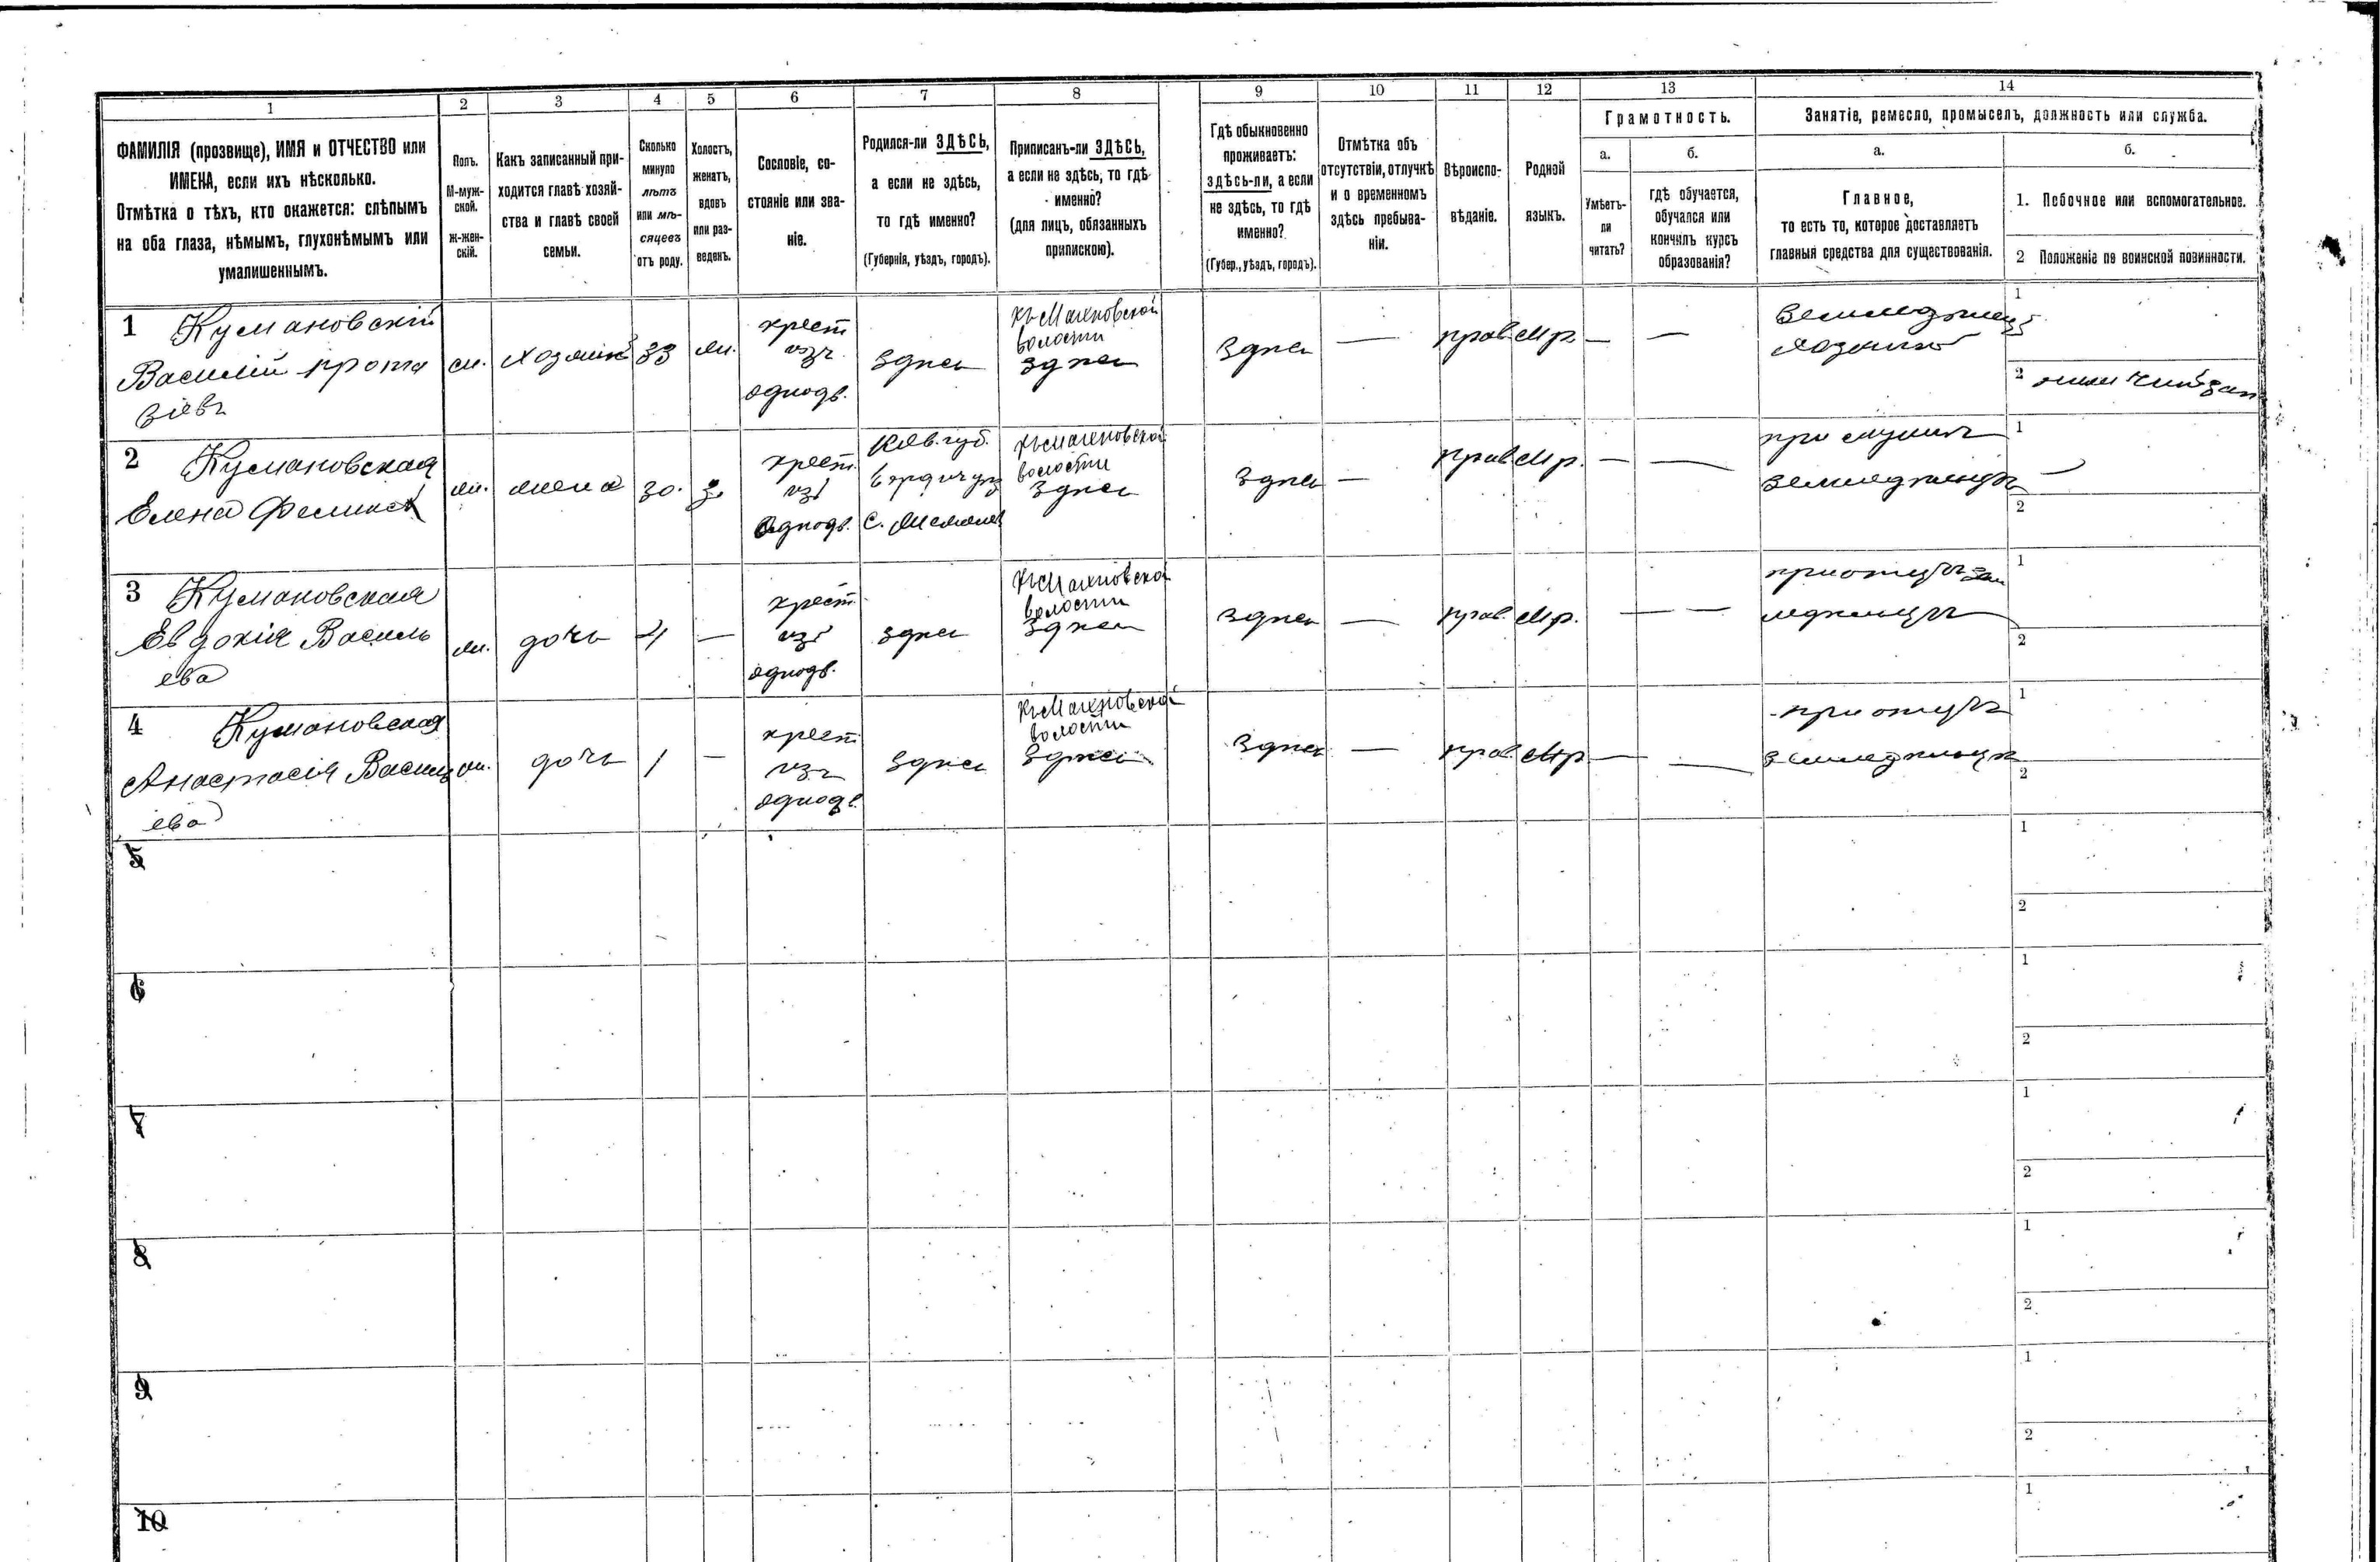 1 2 3 4 5 6 7 8 9 10 11 12 13 14
ФАМИЛІЯ (прозвище), ИМЯ и ОТЧЕСТВО или
ИМЕНА, если ихъ нѣсколько.
Отмѣтка о тѣхъ, кто окажется: слѣпымъ
на оба глаза, нѣмымъ, глухонѣмымъ или
умалишеннымъ.
Полъ.
М-муж-
ской.
ж-жен-
скій.
Какъ записанный при-
ходится главѣ хозяй-
ства и главѣ своей
семьи.
Сколько
минуло
лѣтъ
или мѣ-
сяцевъ
отъ роду.
Холостъ,
женатъ,
вдовъ
или раз-
веденъ.
Сословіе, со-
стояніе или зва-
ніе.
Родился-ли ЗДѢСЬ,
а если не здѣсь,
то гдѣ именно?
(Губернія, уѣздъ, городъ).
Приписанъ-ли ЗДѢСЬ,
а если не здѣсь, то гдѣ
именно?
(для лицъ, обязанныхъ
припискою).
Гдѣ обыкновенно
проживаетъ:
здѣсь-ли, а если
не здѣсь, то гдѣ
именно?
(Губер., уѣздъ, городъ).
Отмѣтка объ
отсутствіи, отлучкѣ
и о временномъ
здѣсь пребыва-
ніи.
Вѣроиспо-
вѣданіе.
Родной
языкъ.
Грамотность.
а.
Умѣетъ-
ли
читать?
б.
гдѣ обучается,
обучался или
кончилъ курсъ
образованія?
Занятіе, ремесло, промыселъ, должность или служба.
а.
Главное,
то есть то, которое доставляетъ
главныя средства для существованія.
б.
1. Побочное или вспомогательное.
2 Положеніе по воинской повинности.
1 Кумановскій
Василій Прота
зіевъ
м.
хозяинъ
33
ж.
крест
изъ
однодв.
здѣсь
къ Махновской
волости
здѣсь
здѣсь
—
прав.
Мр.
—
—
хозяинъ
1
2
2 Кумановская
Елена
ж.
жена
30.
з.
крест.
изъ
однодв.
Кіев. губ.
Бердич. уѣз
с.
къ Махновской
волости
здѣсь
здѣсь
—
прав.
Мр.
—
—
при мужѣ
земледѣлецъ
1
—
2
3 Кумановская
Евдокія Василь
ева
ж.
дочь
4
—
крест.
изъ
однодв.
здѣсь
къ Махновской
волости
здѣсь
здѣсь
—
прав.
Мр.
—
—
при отцѣ зем
ледѣлецъ
1
2
4 Кумановская
Анастасія Василь
ева
ж.
дочь
1
—
крест
изъ
однодв.
здѣсь
къ Махновской
волости
здѣсь
здѣсь
—
прав.
Мр.
—
—
при отцѣ
земледѣлецъ
1
2
5
1
2
6
1
2
7
1
2
8
1
2
9
1
2
10
1